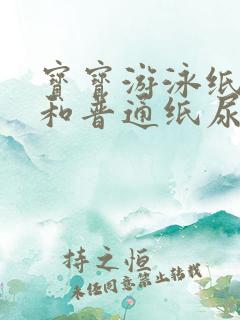 寳寳游泳纸
和普通纸尿
持之恒
未经同意禁止转载